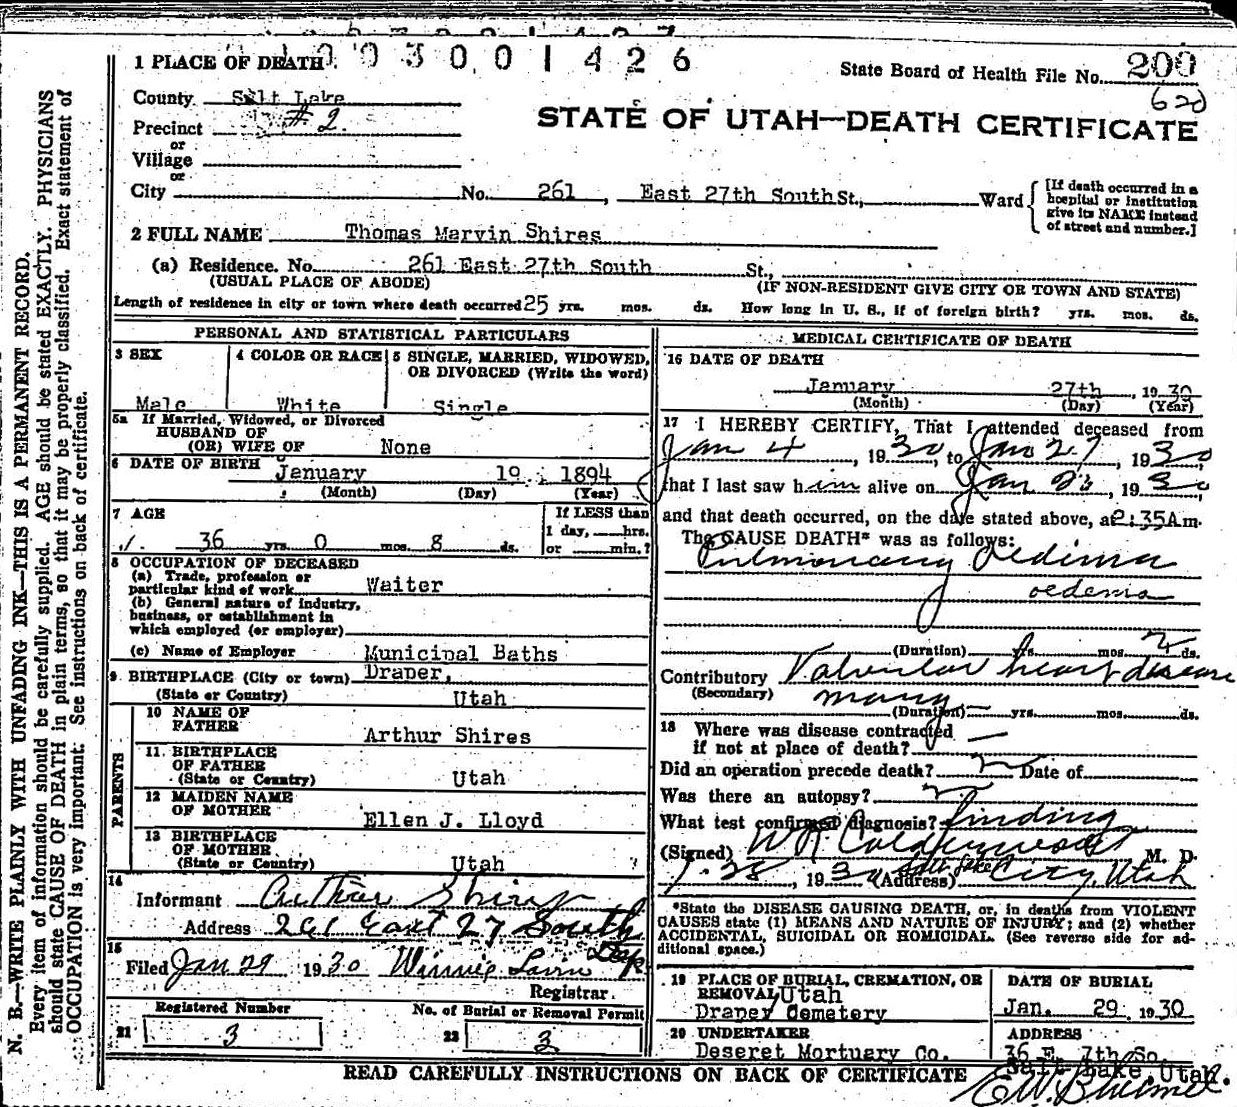 1003001426
1 PLACE OF DEATH
State Board of Health File No. 200
620
County Salt Lake
STATE OF UTAH—DEATH CERTIFICATE
Precinct #2.
or
Village
or
City No. 261, East 27th South St., Ward [If death occurred in a hospital or institution give its NAME instead of street and number.]
2 FULL NAME Thomas Marvin Shires
(a) Residence. No. 261 East 27th South St.,
(USUAL PLACE OF ABODE) (IF NON-RESIDENT GIVE CITY OR TOWN AND STATE)
Length of residence in city or town where death occurred 25 yrs. mos. ds. How long in U. S., if of foreign birth? yrs. mos. ds.
PERSONAL AND STATISTICAL PARTICULARS
3 SEX
Male
4 COLOR OR RACE
White
5 SINGLE, MARRIED, WIDOWED, OR DIVORCED (Write the word)
Single
5a If Married, Widowed, or Divorced
HUSBAND OF
(OR) WIFE OF None
6 DATE OF BIRTH January 19 1894
(Month) (Day) (Year)
7 AGE
36 yrs. 0 mos. 8 ds.
If LESS than
1 day, hrs.
or min.?
8 OCCUPATION OF DECEASED
(a) Trade, profession or
particular kind of work Waiter
(b) General nature of industry,
business, or establishment in
which employed (or employer)
(c) Name of Employer Municipal Baths
9 BIRTHPLACE (City or town) Draper,
(State or Country) Utah
PARENTS
10 NAME OF
FATHER Arthur Shires
11. BIRTHPLACE
OF FATHER
(State or Country) Utah
12 MAIDEN NAME
OF MOTHER Ellen J. Lloyd
13 BIRTHPLACE
OF MOTHER
(State or Country) Utah
14
Informant Arthur Shires
Address 261 East 27 South
15
Filed Jan 29 1930 Winnie Dep
Registrar.
Registered Number
21 3
No. of Burial or Removal Permit
22 3
MEDICAL CERTIFICATE OF DEATH
16 DATE OF DEATH
January 27th, 1930
(Month) (Day) (Year)
17 I HEREBY CERTIFY, That I attended deceased from
Jan 4, 1930, to Jan 27, 1930,
that I last saw him alive on Jan 26, 1930,
and that death occurred, on the date stated above, at 2:35 A m.
The CAUSE DEATH* was as follows:
Pulmonary Oedima
oedema
(Duration) yrs. mos. 2 ds.
Contributory Valvular heart disease
(Secondary) many
(Duration) yrs. mos. ds.
18 Where was disease contracted
if not at place of death? —
Did an operation precede death? Date of
Was there an autopsy?
What test confirmed diagnosis? finding
(Signed) W R Calderwood M. D.
1-28, 1930 (Address) Salt Lake City, Utah
*State the DISEASE CAUSING DEATH, or, in deaths from VIOLENT
CAUSES state (1) MEANS AND NATURE OF INJURY; and (2) whether
ACCIDENTAL, SUICIDAL OR HOMICIDAL. (See reverse side for ad-
ditional space.)
19 PLACE OF BURIAL, CREMATION, OR
REMOVAL Utah
Draper Cemetery
DATE OF BURIAL
Jan. 29 1930
20 UNDERTAKER
Deseret Mortuary Co.
ADDRESS
36 E. 7th So.
Salt Lake, Utah.
READ CAREFULLY INSTRUCTIONS ON BACK OF CERTIFICATE
N. B.—WRITE PLAINLY WITH UNFADING INK—THIS IS A PERMANENT RECORD.
Every item of information should be carefully supplied. AGE should be stated EXACTLY. PHYSICIANS
should state CAUSE OF DEATH in plain terms, so that it may be properly classified. Exact statement of
OCCUPATION is very important. See instructions on back of certificate.